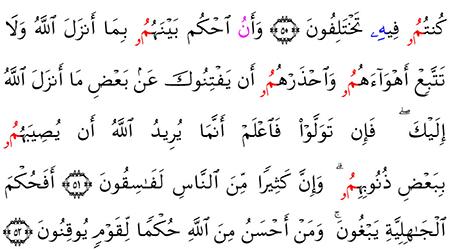 كُنتُمُۥ فِيهِۦ تَخْتَلِفُونَ ۝٥٠ وَأَنُ ٱحْكُم بَيْنَهُمُۥ بِمَا أَنزَلَ ٱللَّهُ وَلَا
تَتَّبِعْ أَهْوَآءَهُمُۥ وَٱحْذَرْهُمُۥ أَن يَفْتِنُوكَ عَنۢ بَعْضِ مَا أَنزَلَ ٱللَّهُ
إِلَيْكَ ۖ فَإِن تَوَلَّوْاْ فَٱعْلَمْ أَنَّمَا يُرِيدُ ٱللَّهُ أَن يُصِيبَهُمُۥ
بِبَعْضِ ذُنُوبِهِمُۥ ۗ وَإِنَّ كَثِيرًا مِّنَ ٱلنَّاسِ لَفَـٰسِقُونَ ۝٥١ أَفَحُكْمَ
ٱلْجَـٰهِلِيَّةِ يَبْغُونَ ۚ وَمَنْ أَحْسَنُ مِنَ ٱللَّهِ حُكْمًا لِّقَوْمٍ يُوقِنُونَ ۝٥٢